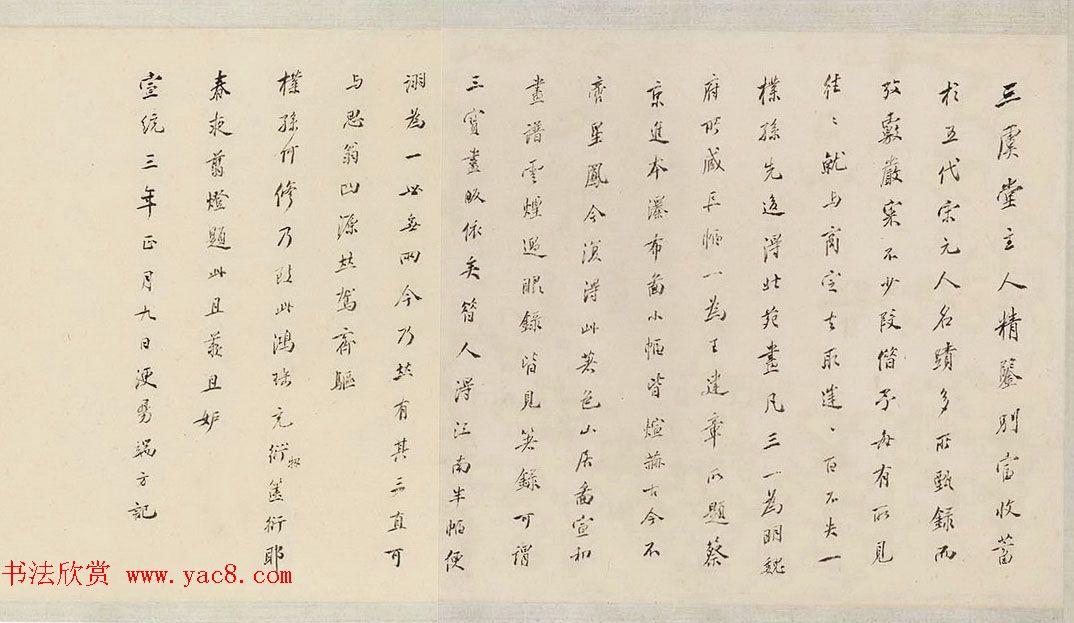 三虞堂主人精鑒別富收蓄
於五代宋元人名蹟多所甄錄而
攷覈嚴案不少叚借予每有所見
往〻就与商定去取蓬〻百不失一
樸孫先後得北苑畫凡三一為明魏
府所藏長幅一為王建章所題蔡
京進本瀑布啚小幅皆煊赫古今不
啻星鳳今復得此著色山居啚宣和
畫譜雲煙過眼錄皆見箸錄可謂
三寶畫皈依矣簪人得江南半幅便
詡為一必無兩今乃共有其三直可
与思翁四源共駕齊驅
樸孫何修乃致此鴻珍充衍箧衍耶
春夜翦燈題此且羨且妒
宣統三年正月九日浭易端方記
书法欣赏 www.yac8.com